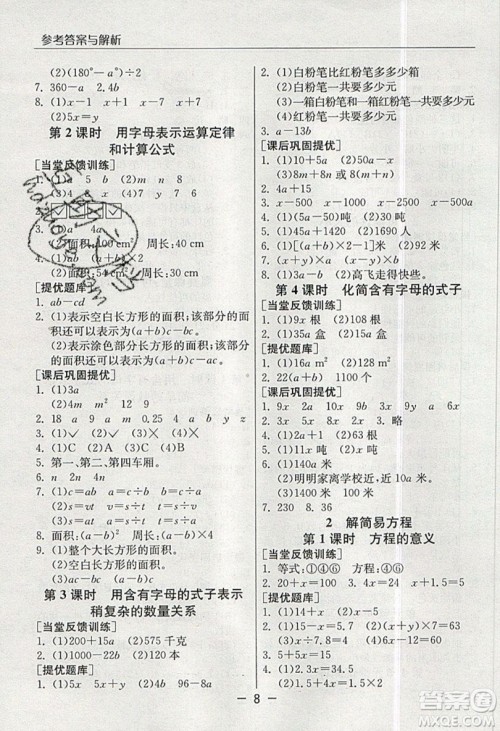 参考答案与解析
(2)(180°-a)÷2
7. 360-a 2.4b
8. (1)x-1 x+1 x-7 x+7
(2)5x=y
第2课时 用字母表示运算定律
和计算公式
[当堂反馈训练]
1. (1)a 5 b (2)m n 8
(3)x y 7 (4)a b a
3. (1)a² 4a
(2)面积:100 cm² 周长:40 cm
4. (1)ab
(2)面积:54 cm² 周长:30 cm
[提优题库]
1. ab-cd
2. (1)表示空白长方形的面积;该部分的面
积还可以表示为(a+b)c-ac
(2)表示涂色部分的面积;该部分的面
积还可以表示为(a+b)c-bc
[课后巩固提优]
1. (1)3a
(2)4m m²
2. 18 a 9 a 2.5 4 a b y z
3. (1)✓ (2)✓ (3)× (4)×
4. (1)A (2)C (3)C (4)B
5. 第一、第二、第四车厢。
6. n 2n 4n
7. (1)c=ab a=c÷b b=c÷a
(2)s=vt v=s÷t t=s÷v
(3)s=at a=s÷t t=s÷a
8. 面积:a² 空白部分面积:a²÷2
9. (1)整个大长方形的面积:(a+b)c
(2)空白长方形的面积:bc
(3)ac=(a+b)c-bc
第3课时 用含有字母的式子表示
稍复杂的数量关系
[当堂反馈训练]
1. (1)200+15a (2)575千克
2. (1)1000-22b (2)120本
[提优题库]
1. (1)2x 4x (2)4a 96-8a
2. (1)白粉笔比红粉笔多多少箱
(2)白粉笔和红粉笔一共有多少箱
(3)一箱白粉笔和一箱红粉笔一共要多少元
(4)白粉笔一共要多少元
3. a-13b
[课后巩固提优]
1. (1)10+5a (2)20-4x
(3)8m+8n (4)18÷(a+b)
2. 4a+15
3. x-500 x-1000 x-2500 x-500
4. (1)20+3a (2)35吨
5. (1)42a+45b (2)1690人
6. (1)(a+b)×2 (2)1200吨
7. (1)y(x-a) (2)(x-y)x
8. (1)a-b+c (2)高飞走得快一些。
第4课时 化简含有字母的式子
[当堂反馈训练]
1. (1)9x根 (2)108根
2. (1)10a米 (2)35a米
[提优题库]
1. (1)12m² (2)12m² (3)127m²
2. 22(a+b) 110米
[课后巩固提优]
1. 9x 2x 10a 6x m 2x²
2. 7x 4a x 12m 8y 27b
3. (1)7a根 (2)60根
4. (1)(a+b)×2 (2)100米
5. (1)10a米
(2)明明家离学校近,近2a米。
7. 230 8. 36
2 解简易方程
第1课时 方程的意义
[当堂反馈训练]
1. 等式:①④⑥ 方程:④⑥
2. 20+x=100 4x=1.5×2
[提优题库]
1. (1)14+x=y+20
(2)y=2×(x+y)×7
(3)8x+6=60
(4)x÷3=x-36
2. (1)2x-10=34.5
(2)2x+1.5=5.5
[课后巩固提优]
1. (1)✓ (2)× (3)× (4)✓
— 8 —